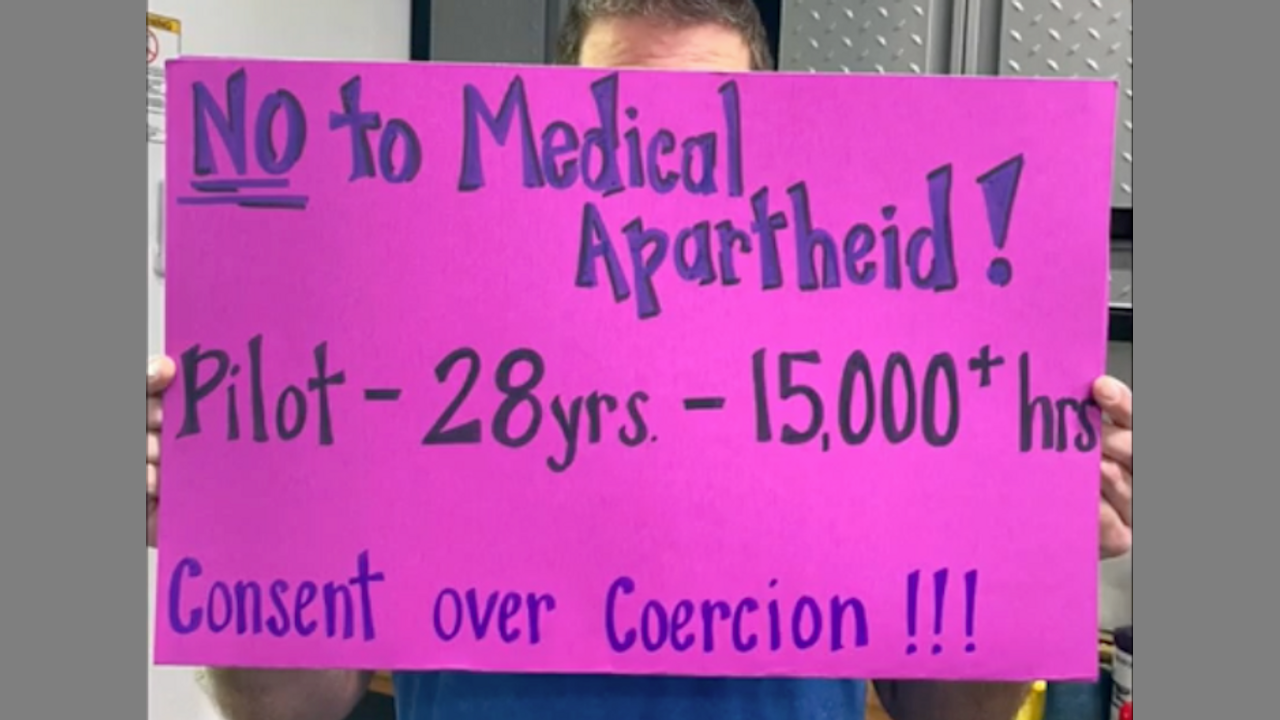 NO to Medical
Apartheid!
Pilot - 28yrs. - 15,000+ hrs
Consent over Coercion !!!